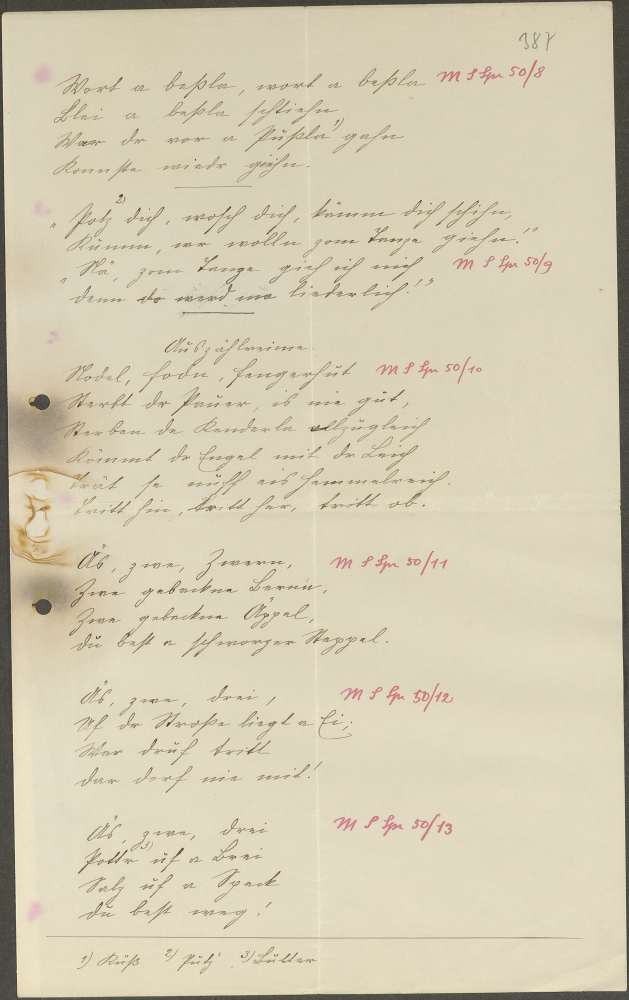 387
Wort a beßla, wort a beßla M S Spr 50/8
Blei a beßla schtiehn
War dr vor a Pußla 1) gahn
Konnste wiedr giehn.
"Potz 2) dich, wosch dich, kämm dich schihn,
Kumm, mr wolln zom Tanze giehn!"
"Nä, zom Tanze gieh ich nich M S Spr 50/9
denn do werd ma liederlich!"
Auszählreime.
Nodel, Fodn, Fengerhut M S Spr 50/10
Sterbt dr Pauer, is nie gut,
Sterben de Kenderla ollzugleich
Kömmt dr Engel mit dr Leich
Trät se nuff eis Hemmelreich.
Tritt hin, tritt her, tritt ob.
Äs, zwe, Zwern, M S Spr 50/11
Zwe gebackne Bernn,
Zwe gebackne Äppel,
du best a schworzer Steppel.
Äs, zwe, drei, M S Spr 50/12
Uf dr Stroße liegt a Ei;
War druf tritt
dar dorf nie mit!
Äs, zwe, drei M S Spr 50/13
Pottr 3) uf a Brei
Salz uf a Speck
du best weg!
1) Kuß 2) Putz 3) Butter